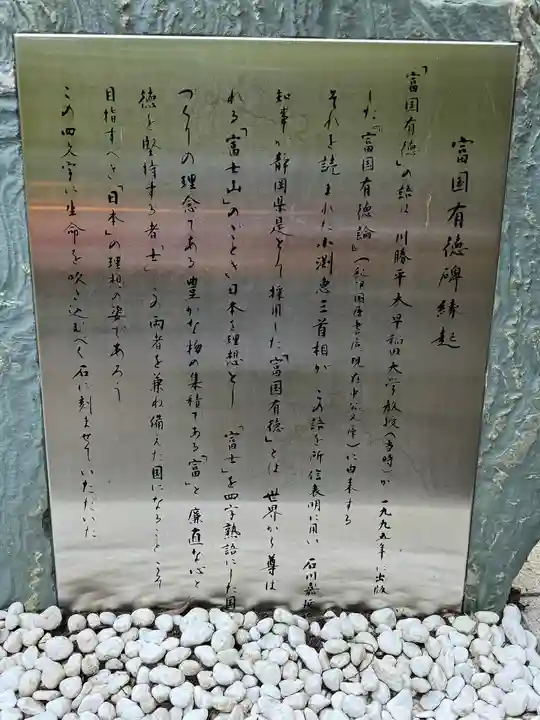 富国有徳碑縁起
「富国有徳」の語は 川勝平太 早稲田大学教授(当時)が 一九九五年に出版
した「富国有徳論」(紀伊国屋書店 現在中公文庫)に由来する
それを読まれた小渕恵三首相が この語を所信表明に用い 石川嘉延
知事が静岡県是として採用した「富国有徳」とは 世界から尊ば
れる「富士山」のごとき日本を理想とし 「富士」を四字熟語にした国
づくりの理念である 豊かな物の集積である「富」と 廉直な心と
徳を堅持する者「士」 この両者を兼ね備えた国になること これが
目指すべき「日本」の理想の姿であろう
この四文字に生命を吹き込むべく石に刻ませていただいた